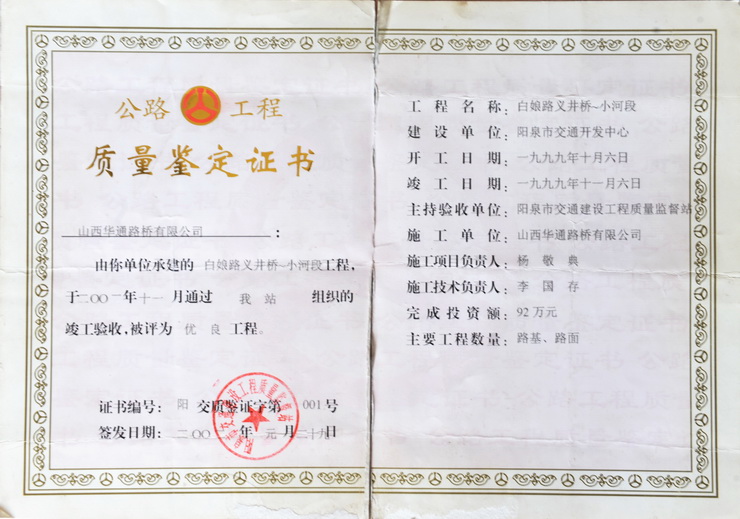 公路 工程
质量鉴定证书
山西华通路桥有限公司:
由你单位承建的 白娘路义井桥~小河段工程,
于二〇〇一年十一月通过 我站 组织的
竣工验收,被评为 优良 工程。
证书编号: 阳 交质鉴证字第 001号
签发日期: 二〇〇 年 元 月二十九日
工程名称: 白娘路义井桥~小河段
建设单位: 阳泉市交通开发中心
开工日期: 一九九九年十月六日
竣工日期: 一九九九年十一月六日
主持验收单位: 阳泉市交通建设工程质量监督站
施工单位: 山西华通路桥有限公司
施工项目负责人: 杨敬典
施工技术负责人: 李国存
完成投资额: 92万元
主要工程数量: 路基、路面